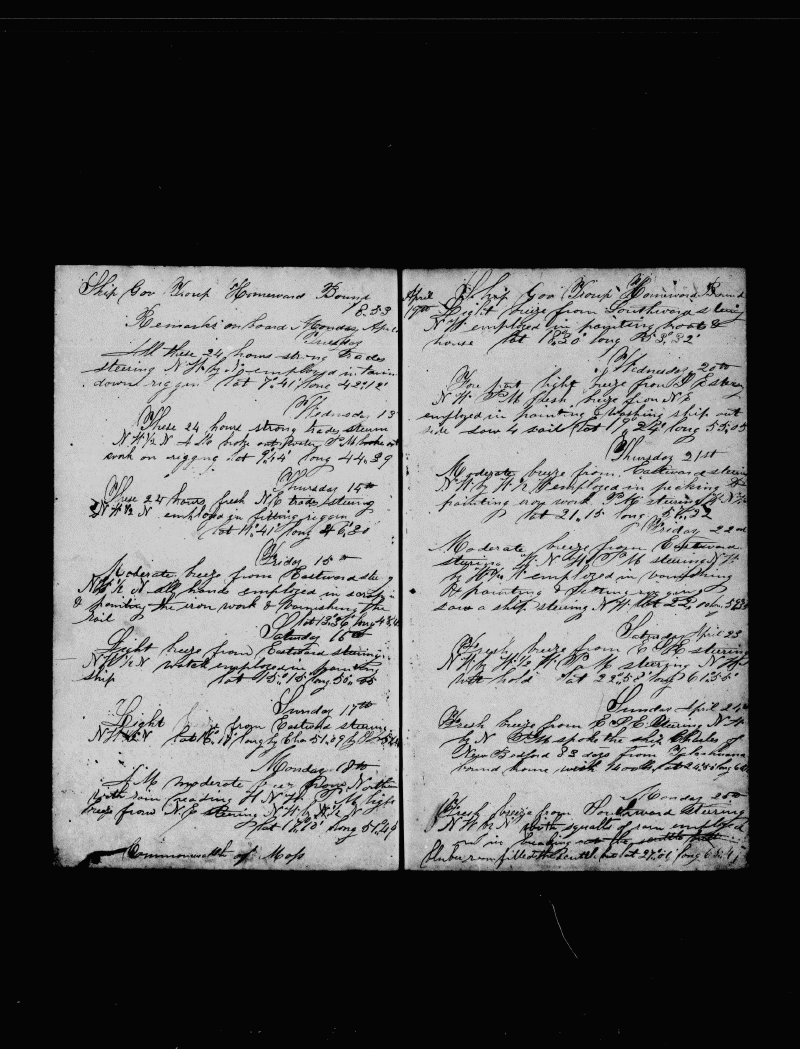 Ship Gov Troup Homeward Bound
1853
Remarks on board Monday Apr
Tuesday
All these 24 hours strong trades
steering N W by N employed in tarin
down riggen Lat 7°.41' Long 42°.12'
Wednsday 13
These 24 hours strong trads steern
N W ½ N broke out Water P M broke out
work on rigging Lat 9°.44' long 44.29
Thursday 14th
These 24 hours fresh N.E trads steering
N W ½ N employd in fitting riggen
Lat 11°.41' long 46°.20'
Friday 15th
Moderate breeze from Eastward
N W ½ N all hands employed in scraping
& painting the iron work & varnishing the
rail Lat 13.36 long
Saturday 16th
Light breeze from Eastard steering
N W ½ N watch employed in painting
ship Lat 15°.15' long 50°.05
Sunday 17th
Light from Eastward steering
N W ½ N Lat 16°.18' long by Chro 51.09
Monday 18th
A.M moderate from Northern
with rain heading W N W P M light
breeze from N.E steering N W by N
Lat long 51°.41'
Commonwealth of Mass
April Ship Gov Troup Homeward Bound
19th Light breeze from Southward steering
N W employed in painting boats &
house Lat 18°.20' long 53°.32'
Wednesday 20th
Fore part light breeze from S E steerg
N W P M fresh breeze from N E
employed in painting & washing ship out
side saw 4 sail Lat 19°.24' long 55.05
Thursday 21st
Moderate breeze from Eastward steering
N W by W ½ W employed in picking &
painting iron work P M steering
Lat 21.15 long
Friday 22nd
Moderate breeze from Eastward
steering W N W P M steering N W
by W employed in varnishing
& painting & fitting riggen
saw a ship steering N W Lat 22°
Saturday April 23
Fresh breeze from E steering
N W by W ½ W P M steerg N W
Lat 22°.58' long 61°.56'
Sunday April 24th
Fresh breeze from E S E Steering N W
by N P M spoke the ship of
New Bedford 83 days from
bound home with
Monday 25th
Fresh breeze from Southward Steering
N W ½ N with squalls of rain employed
in breaking out the
filled Lat 27°.01' long